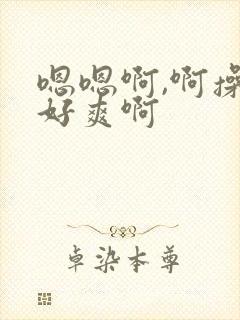 嗯嗯啊,啊操
好爽啊
卓染本尊